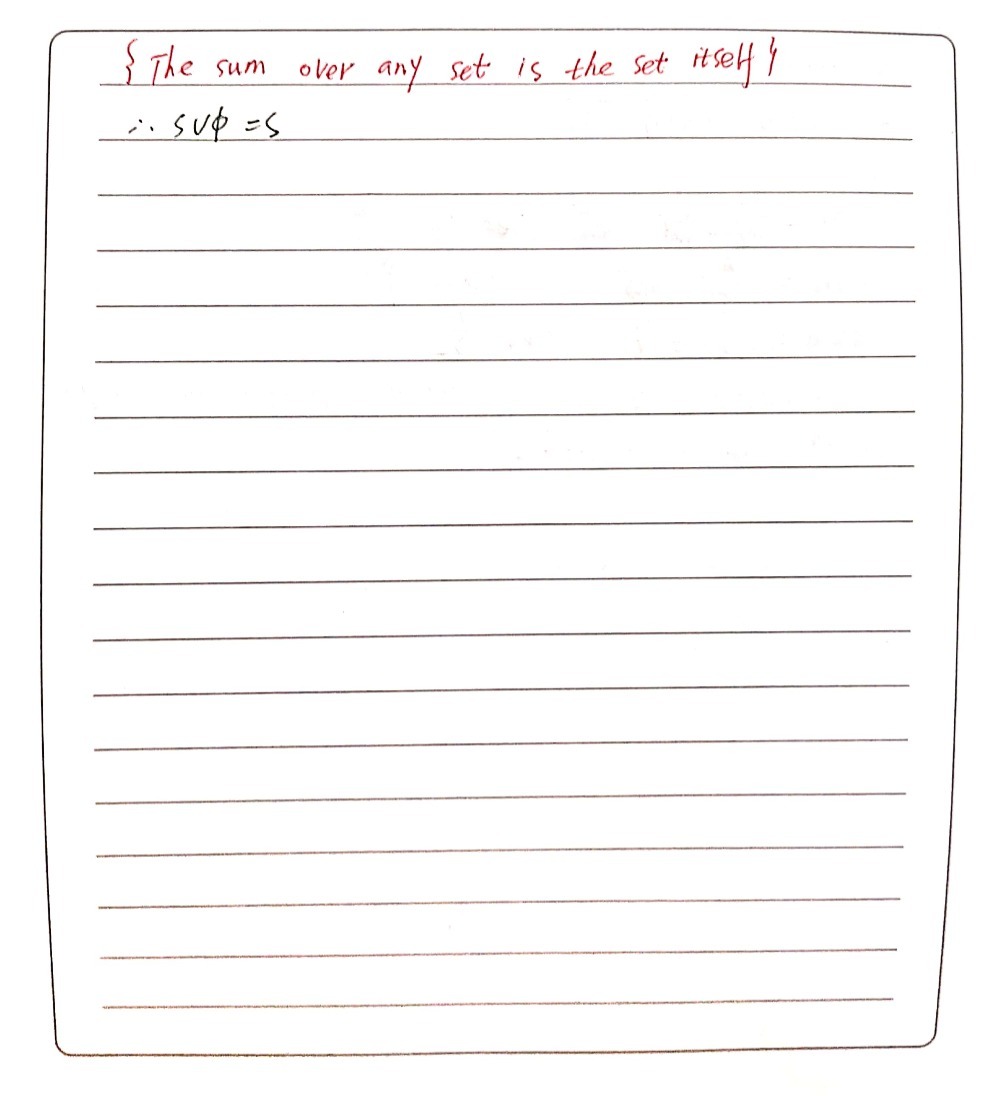 { The sum over any set is the set itself }
∴ S∪ϕ = S